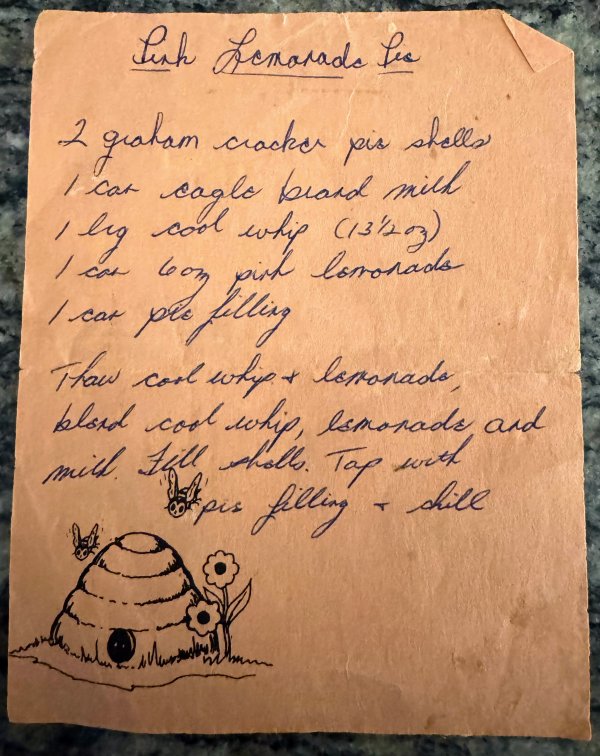 Pink Lemonade Pie
2 graham cracker pie shells
1 can eagle brand milk
1 lrg cool whip (13 1/2 oz)
1 can 6oz pink lemonade
1 can pie filling
Thaw cool whip + lemonade,
blend cool whip, lemonade and
milk. Fill shells. Top with
pie filling + chill